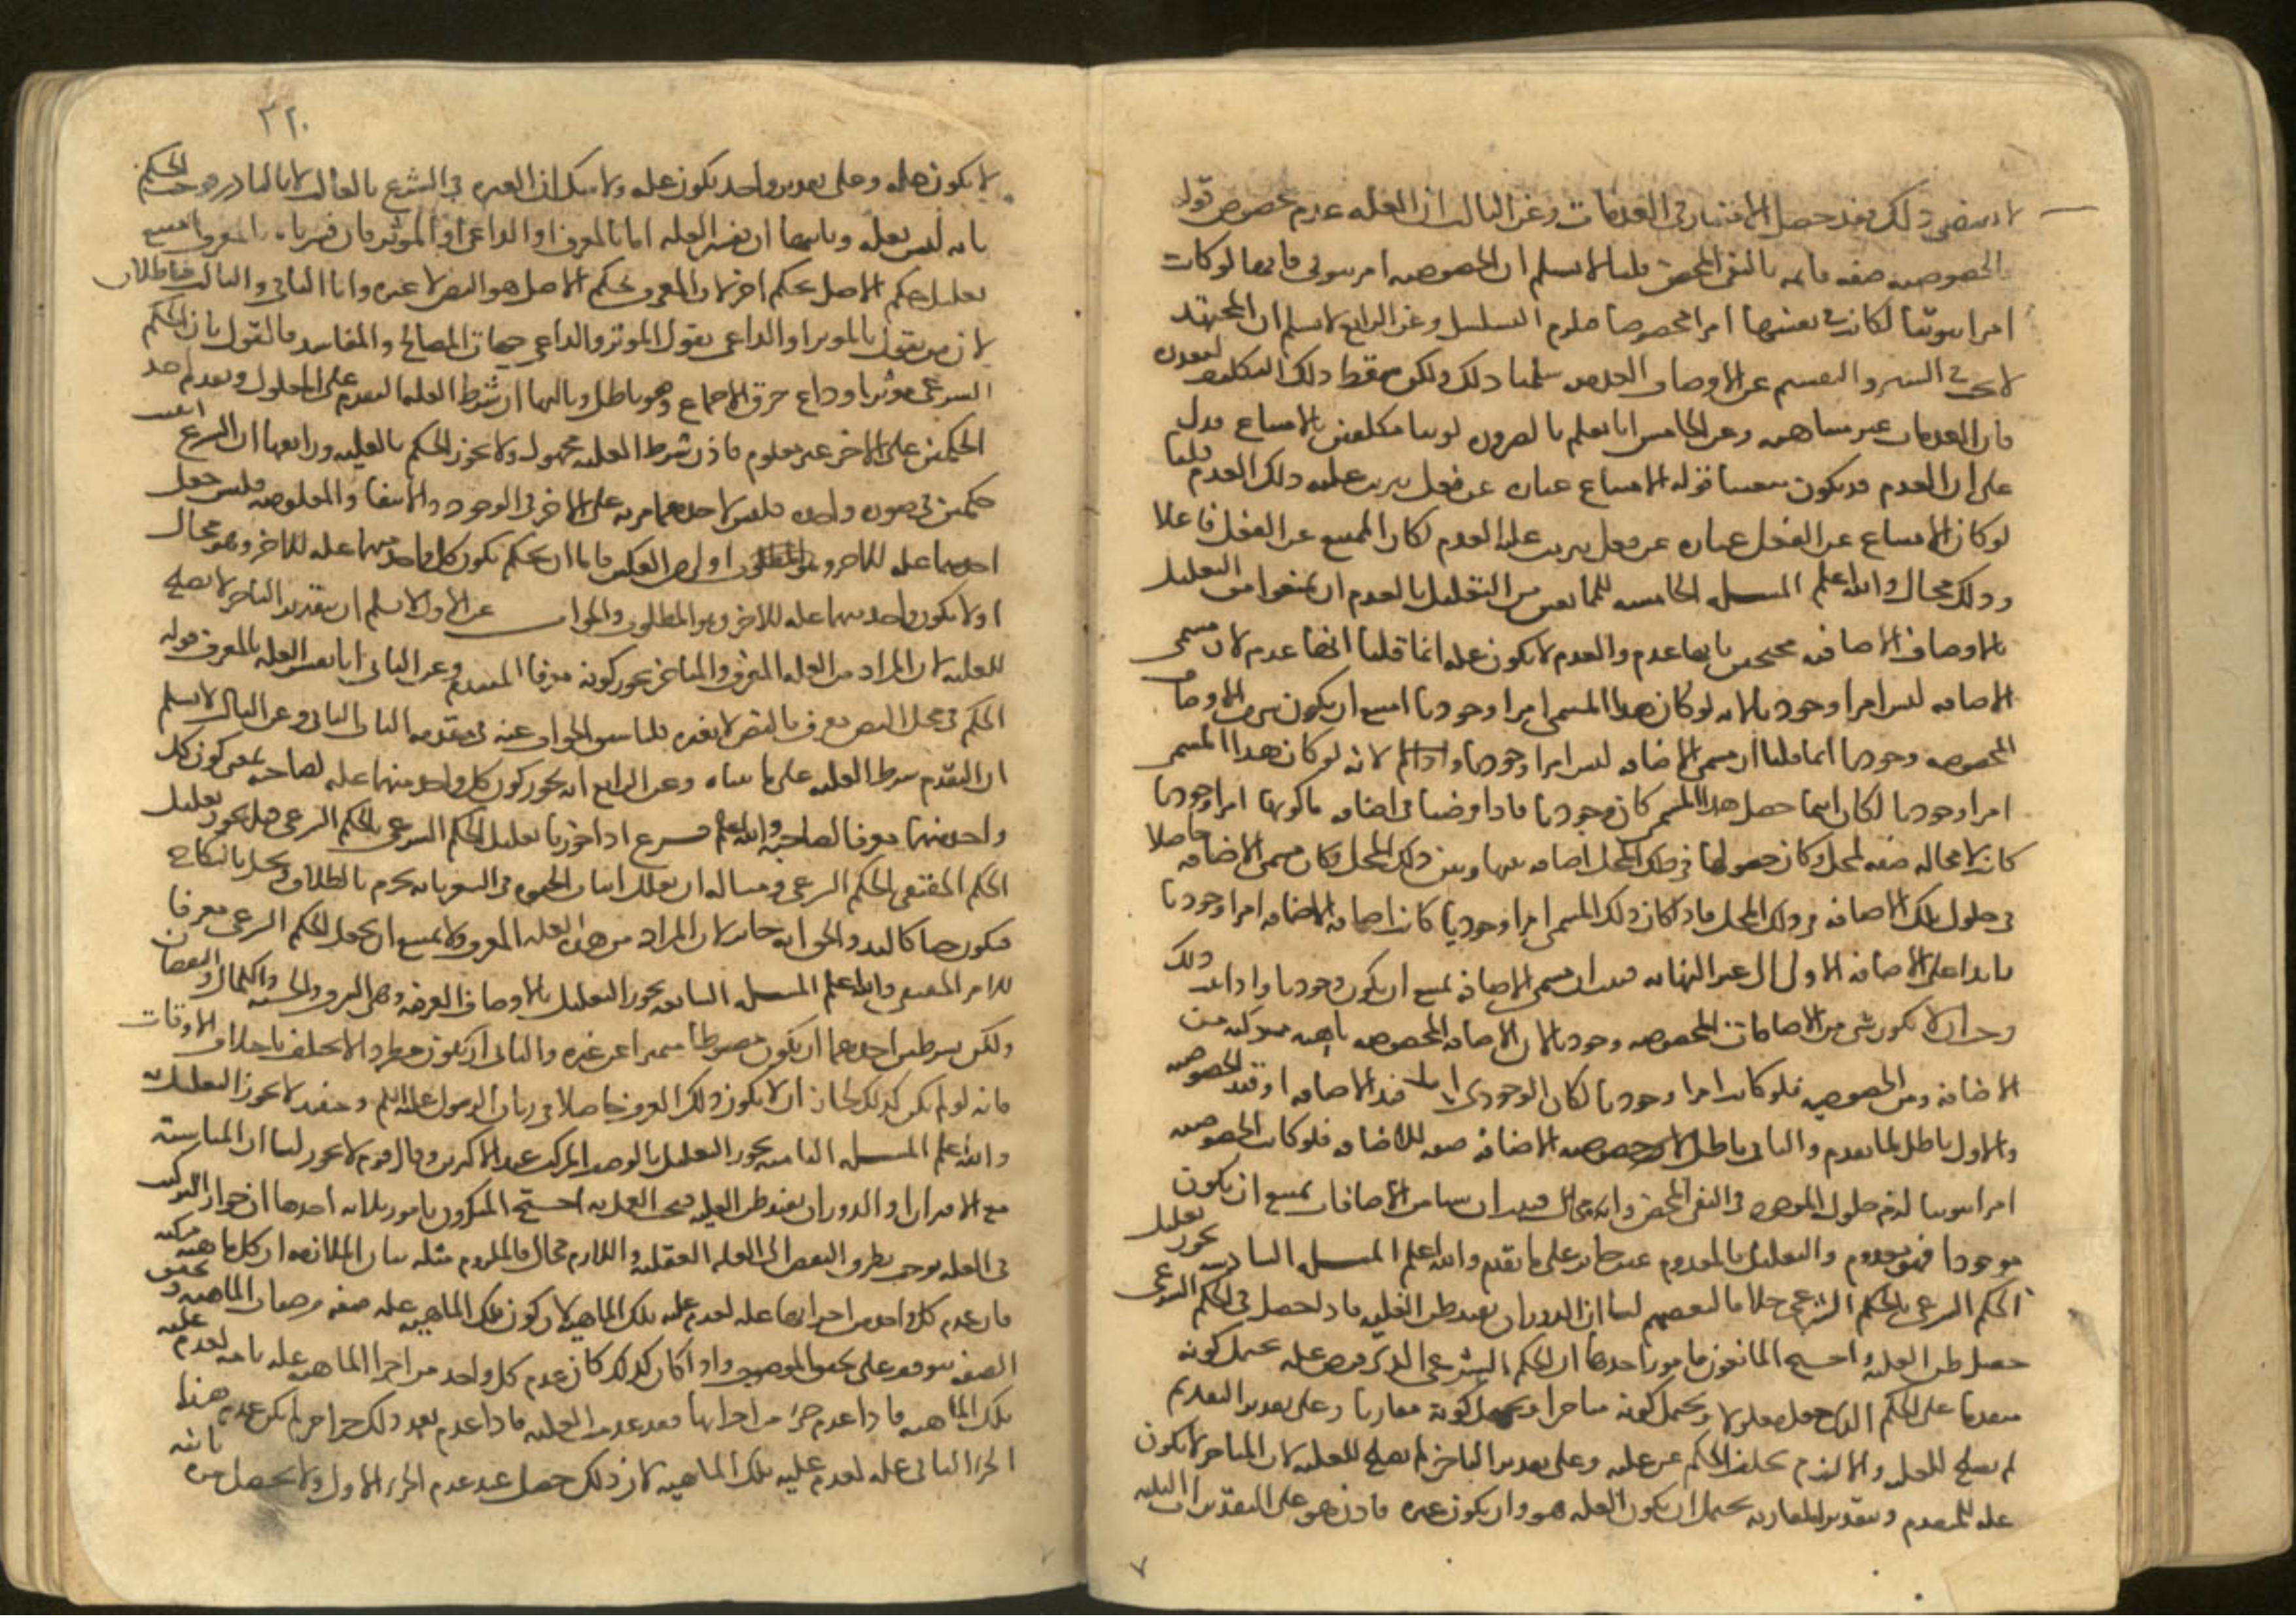 لا يقتضي ذلك فقد حصل الامتياز في العدمات وعن الثالث ان العلة عدم مخصوص قوله
والخصوصية صفة قائمة بالنفي المحض قلنا لا نسلم ان الخصوصية امر ثبوتي فانها لو كانت
امرا ثبوتيا لكانت في نفسها امرا مخصوصا فلزم التسلسل وعن الرابع لا نسلم ان المجتهد
لا يبحث في السبر والتقسيم عن الاوصاف العدمية سلمنا ذلك ولكن سقط ذلك التكليف لتعذره
فان العدمات غير متناهية وعن الخامس انا نعلم بالضرورة كوننا مكلفين بالامتناع فدل
على ان العدم قد يكون قوله الامتناع عبارة عن فعل يترتب عليه ذلك العدم قلنا
لو كان الامتناع عن الفعل عبارة عن فعل يترتب عليه العدم لكان الممتنع عن الفعل فاعلا
وذلك محال والله اعلم المسئلة الخامسة للمانعين من التعليل بالعدم ان يمنعوا من التعليل
بالاوصاف الاضافية محتجين بانها عدم والعدم لا يكون علة انما قلنا انها عدم لان مسمى
الاضافة ليس امرا وجوديا لانه لو كان هذا المسمى امرا وجوديا امتنع ان يكون شيء من الاوصاف
المخصوصة وجوديا انما قلنا ان مسمى الاضافة ليس امرا وجوديا لانه لو كان هذا المسمى
امرا وجوديا لكان اينما حصل هذا المسمى كان وجوديا فاذا فرضنا في اضافة ما كونها امرا وجوديا
كانت لا محالة صفة لمحل وكان حصولها في ذلك المحل اضافة بينها وبين ذلك المحل فكان مسمى الاضافة حاصلا
في حلول تلك الاضافة في ذلك المحل فاذا كان ذلك المسمى امرا وجوديا كانت اضافة الاضافة امرا وجوديا
زائدا على الاضافة الاولى الى غير النهاية فثبت ان مسمى الاضافة يمتنع ان يكون وجوديا واذا ثبت ذلك
وجب ان لا يكون شيء من الاضافات المخصوصة وجوديا لان الاضافة المخصوصة ماهية مركبة من
الاضافة ومن الخصوصية فلو كانت امرا وجوديا لكان الوجودي اما قيد الاضافة او قيد الخصوصية
والاول باطل لما تقدم والثاني باطل لان خصوصية الاضافة صفة للاضافة فلو كانت الخصوصية
امرا ثبوتيا لزم حلول الموجود في النفي المحض وانه محال فثبت ان شيئا من الاضافات يمتنع ان يكون
موجودا فهو معدوم والتعليل بالمعدوم غير جائز على ما تقدم والله اعلم المسئلة السادسة يجوز تعليل
الحكم الشرعي بالحكم الشرعي خلافا لبعضهم لنا ان الدوران يفيد ظن العلية فاذا حصل في الحكم الشرعي
حصل ظن العلية واحتج المانعون بامور احدها ان الحكم الشرعي الذي فرض علة يحتمل كونه
متقدما على الحكم الذي جعل معلولا ويحتمل كونه متاخرا ويحتمل كونه مقارنا وعلى تقدير التقديم
لم يصلح للعلية والا لزم تخلف الحكم عن علته وعلى تقدير التاخر لم يصلح للعلية لان المتاخر لا يكون
علة للمتقدم وبتقدير المقارنة يحتمل ان يكون العلة هو وان يكون غيره فاذن هو على التقديرات الثلاثة
٣٢٠
لا يكون علة وعلى تقدير واحد يكون علة ولا شك ان العبرة في الشرع بالغالب لا بالنادر فوجب الحكم
بانه ليس بعلة وثانيها ان نفسر العلة اما بالمعرف او الداعي او المؤثر فان فسرناه بالمعرف امتنع
تعليل حكم الاصل بحكم اخر لان المعرف لحكم الاصل هو النص لا غيره واما الثاني والثالث فباطلان
لان من يقول بالمؤثر او الداعي يقول المؤثر والداعي جهات المصالح والمفاسد فالقول بان الحكم
الشرعي مؤثر او داع خرق الاجماع وهو باطل وثالثها ان شرط العلة التقدم على المعلول وتقدم احد
الحكمين على الاخر غير معلوم فاذن شرط العلية مجهول ولا يجوز الحكم بالعلية ورابعها ان الشرع اثبت
حكمين في صورة واحدة فليس لاحدهما مزية على الاخر في الوجود والانتفاء والمعلومية فليس جعل
احدهما علة للاخر اولى من العكس فاما ان يحكم بكون كل واحد منهما علة للاخر وهو محال
او لا يكون واحد منهما علة للاخر وهو المطلوب والجواب عن الاول لا نسلم ان بتقدير التاخر لا يصلح
للعلية لان المراد من العلة المعرف والمتاخر يجوز كونه معرفا للمتقدم وعن الثاني انا نفسر العلة بالمعرف قوله
الحكم في محل النص معرف بالنص لا بغيره قلنا سبق الجواب عنه في مقدمة الباب الثاني وعن الثالث لا نسلم
ان التقدم شرط العلية على ما بيناه وعن الرابع انه يجوز كون كل واحد منهما علة لصاحبه بمعنى كون كل
واحد منهما معرفا لصاحبه والله اعلم فرع اذا جوزنا تعليل الحكم الشرعي بالحكم الشرعي فهل يجوز تعليل
الحكم الحقيقي بالحكم الشرعي ومثاله ان نعلل اثبات الحيوة في الشعر بانه يحرم بالطلاق ويحل بالنكاح
فيكون حيا كاليد والحق انه جائز لان المراد من هذه العلة المعرف ولا يمتنع ان يجعل الحكم الشرعي معرفا
للامر الحقيقي والله اعلم المسئلة السابعة يجوز التعليل بالاوصاف العرفية وهي الشرف والخسة والكمال والنقصان
ولكن بشرطين احدهما ان يكون مضبوطا متميزا عن غيره والثاني ان يكون مطردا لا يختلف باختلاف الاوقات
فانه لو لم يكن كذلك لجاز ان لا يكون ذلك العرف حاصلا في زمان الرسول عليه السلم وحينئذ لا يجوز التعليل به
والله اعلم المسئلة الثامنة يجوز التعليل بالوصف المركب عند الاكثرين وقال قوم لا يجوز لنا ان المناسبة
مع الاقتران او الدوران يفيد ظن العلية فيجب العمل به احتج المنكرون بامور ثلاثة احدها ان جواز التركيب
في العلة يوجب تطرق النقض الى العلة العقلية واللازم محال فالملزوم مثله بيان الملازمة ان كل ماهية مركبة
فان عدم كل واحد من اجزائها علة لعدم علية تلك الماهية لان كون تلك الماهية علة صفة من صفات الماهية وتحقق
الصفة يتوقف على تحقق الموصوف واذا كان كذلك كان عدم كل واحد من اجزاء الماهية علة تامة لعدم علية
تلك الماهية فاذا عدم جزء من اجزائها فقد عدمت العلية فاذا عدم بعد ذلك جزء اخر لم يكن عدم هذا
الجزء الثاني علة لعدم علية تلك الماهية لان ذلك حصل عند عدم الجزء الاول ولا يحصل مرة ثانية